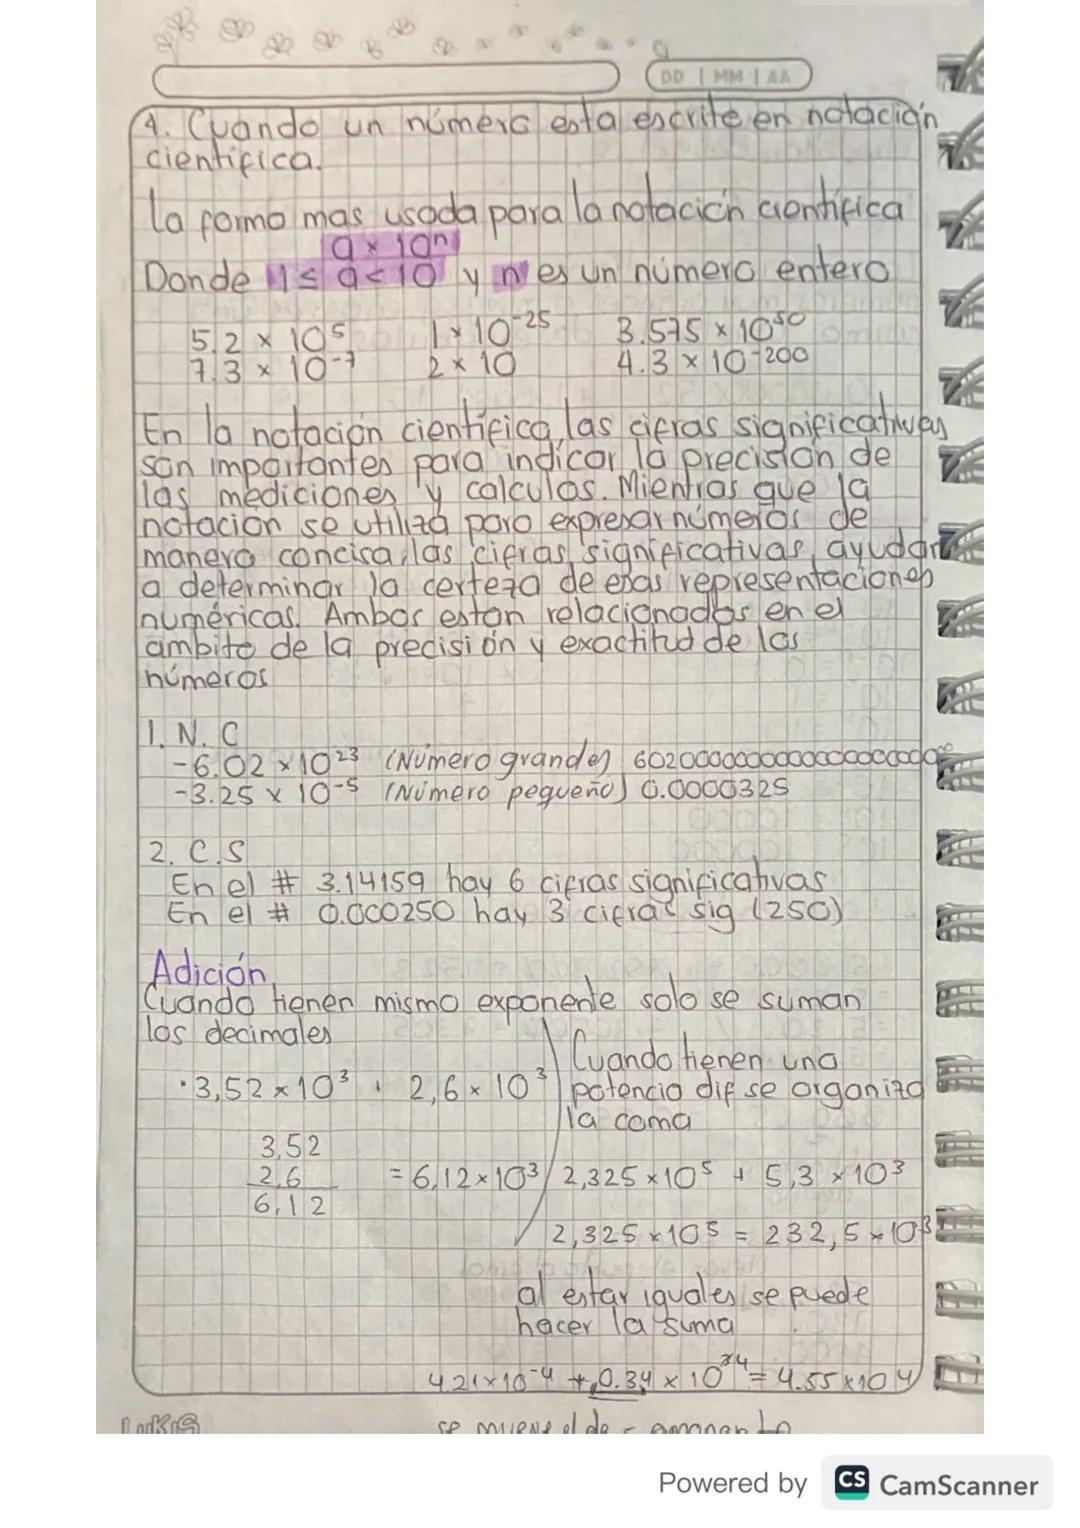 DD | MM | AA
4. Cuando un número esta escrito en notación
cientifica.
la forma mas usada para la notación cientifica
a × 10ⁿ
Donde 1 ≤ a < 10 y n es un número entero
5.2 × 10⁵ 1 × 10⁻²⁵ 3.575 × 10⁵⁰
7.3 × 10⁻⁷ 2 × 10 4.3 × 10⁻²⁰⁰
En la notación científica, las cifras significativas
son importantes para indicar la precisión de
las mediciones y calculos. Mientras que la
notacion se utiliza para expresar números de
manera concisa, las cifras significativas, ayudan
a determinar la certeza de esas representaciones
numéricas. Ambas estan relacionadas en el
ambito de la precisión y exactitud de los
números
1. N. C
-6.02 × 10²³ (Número grande)
-3.25 × 10⁻⁵ (Número pequeño) 0.0000325
2. C.S
En el # 3.14159 hay 6 cifras significativas
En el # 0.000250 hay 3 cifras sig (250)
Adición
Cuando tienen mismo exponente solo se suman
los decimales
·3,52 × 10³ + 2,6 × 10³
3,52
2,6
6,12
= 6,12 × 10³
Cuando tienen una
potencia dif se organiza
la coma
2,325 × 10⁵ + 5,3 × 10³
2,325 × 10⁵ = 232,5 × 10³
al estar iguales se puede
hacer la suma
4.21×10⁻⁴ + 0.34 × 10 = 4.55×10⁴
se mueve el
Powered by CS CamScanner